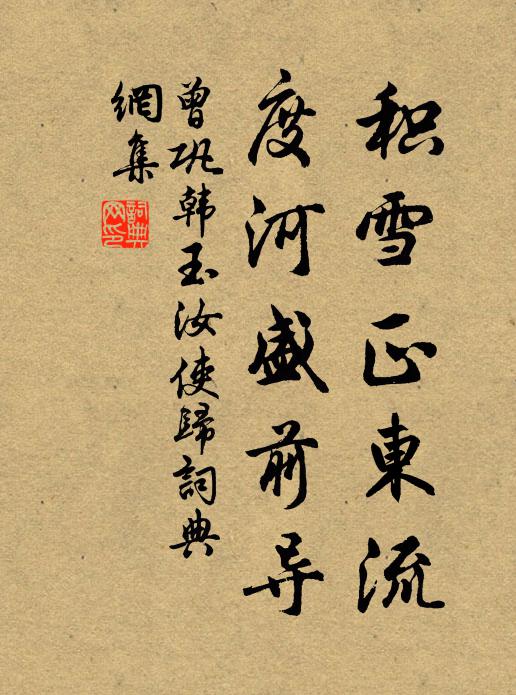 积雪正東流
度河盛前导
曾巩韩玉汝使歸詞典
網集
詞典
网印